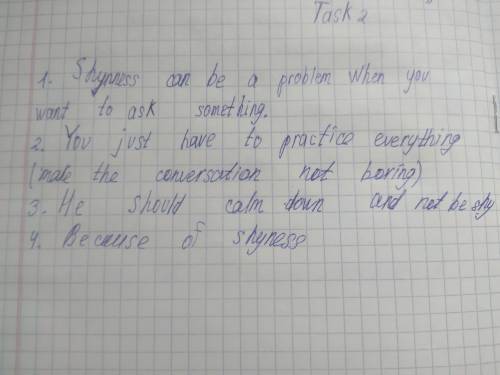 Task 2
1. Shynness can be a problem when you
want to ask something.
2. You just have to practice everything
(make the conversation not boring)
3. He should calm down and not be shy
4. Because of shyness